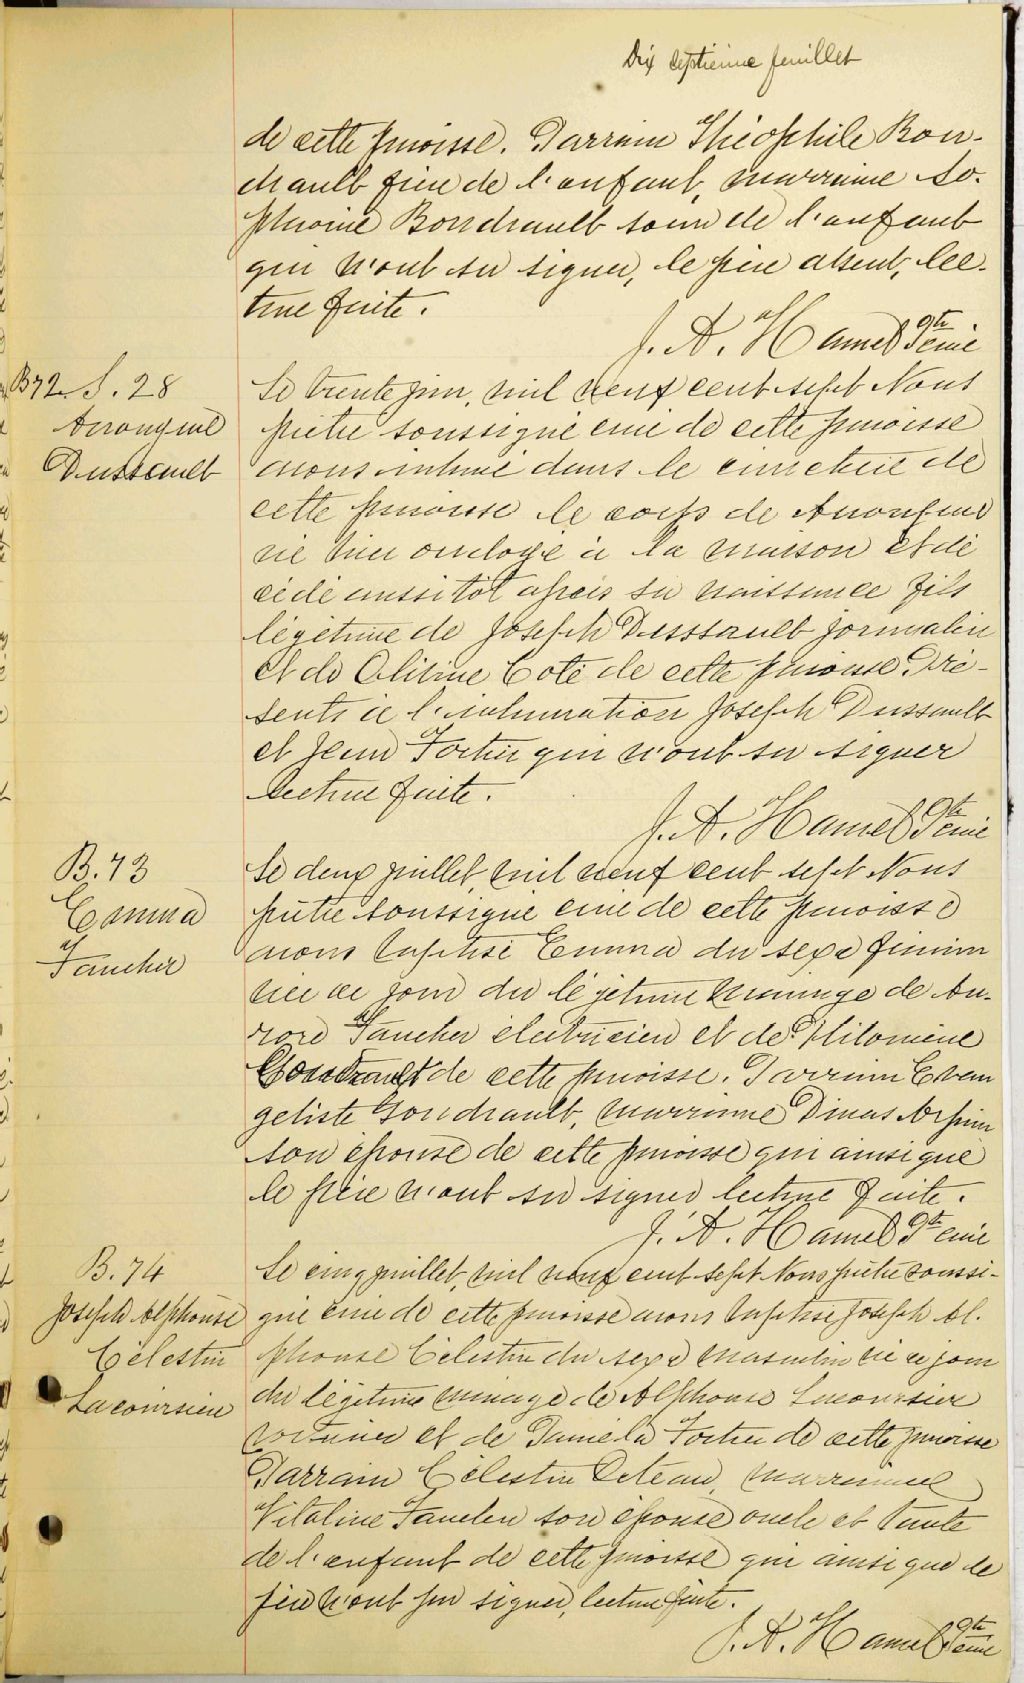 Dix septième feuillet
de cette paroisse. Parrain Théophile Bou-
drault frère de l'enfant, marraine So-
phronie Boudrault soeur de l'enfant
qui n'ont su signer, le père absent, lec-
ture faite.
J. A. Hamel Ptre curé
B72 S. 28
Anonyme
Dussault
Le trente juin, mil neuf cent sept Nous
prêtre soussigné curé de cette paroisse
avons inhumé dans le cimetière de
cette paroisse le corps de Anonyme
né hier ondoyé à la maison et dé
cédé aussitôt après sa naissance fils
légitime de Joseph Dussault journalier
et de Olivine Coté de cette paroisse. Pré-
sents à l'inhumation Joseph Dussault
et Jean Fortier qui n'ont su signer
lecture faite.
J. A. Hamel Ptre curé
B. 73
Emma
Faucher
Le deux juillet, mil neuf cent sept Nous
prêtre soussigné curé de cette paroisse
avons baptisé Emma du sexe féminin
née ce jour du légitime mariage de Au-
rore Faucher électricien et de Philomène
de cette paroisse. Parrain Evan
geliste Goudrault, marraine Dinas Arpin
son épouse de cette paroisse qui ainsi que
le père n'ont su signer lecture faite.
J. A. Hamel Ptre curé
B. 74
Joseph Alphonse
Célestin
Lacoursière
Le cinq juillet, mil neuf cent sept Nous prêtre soussi-
gné curé de cette paroisse avons baptisé Joseph Al-
phonse Célestin du sexe masculin né ce jour
du légitime mariage de Alphonse Lacoursière
voiturier et de Paméla Fortier de cette paroisse
Parrain Célestin Coteau, marraine
Vitaline Faucher son épouse oncle et tante
de l'enfant de cette paroisse qui ainsi que le
père n'ont pu signer, lecture faite.
J. A. Hamel Ptre curé